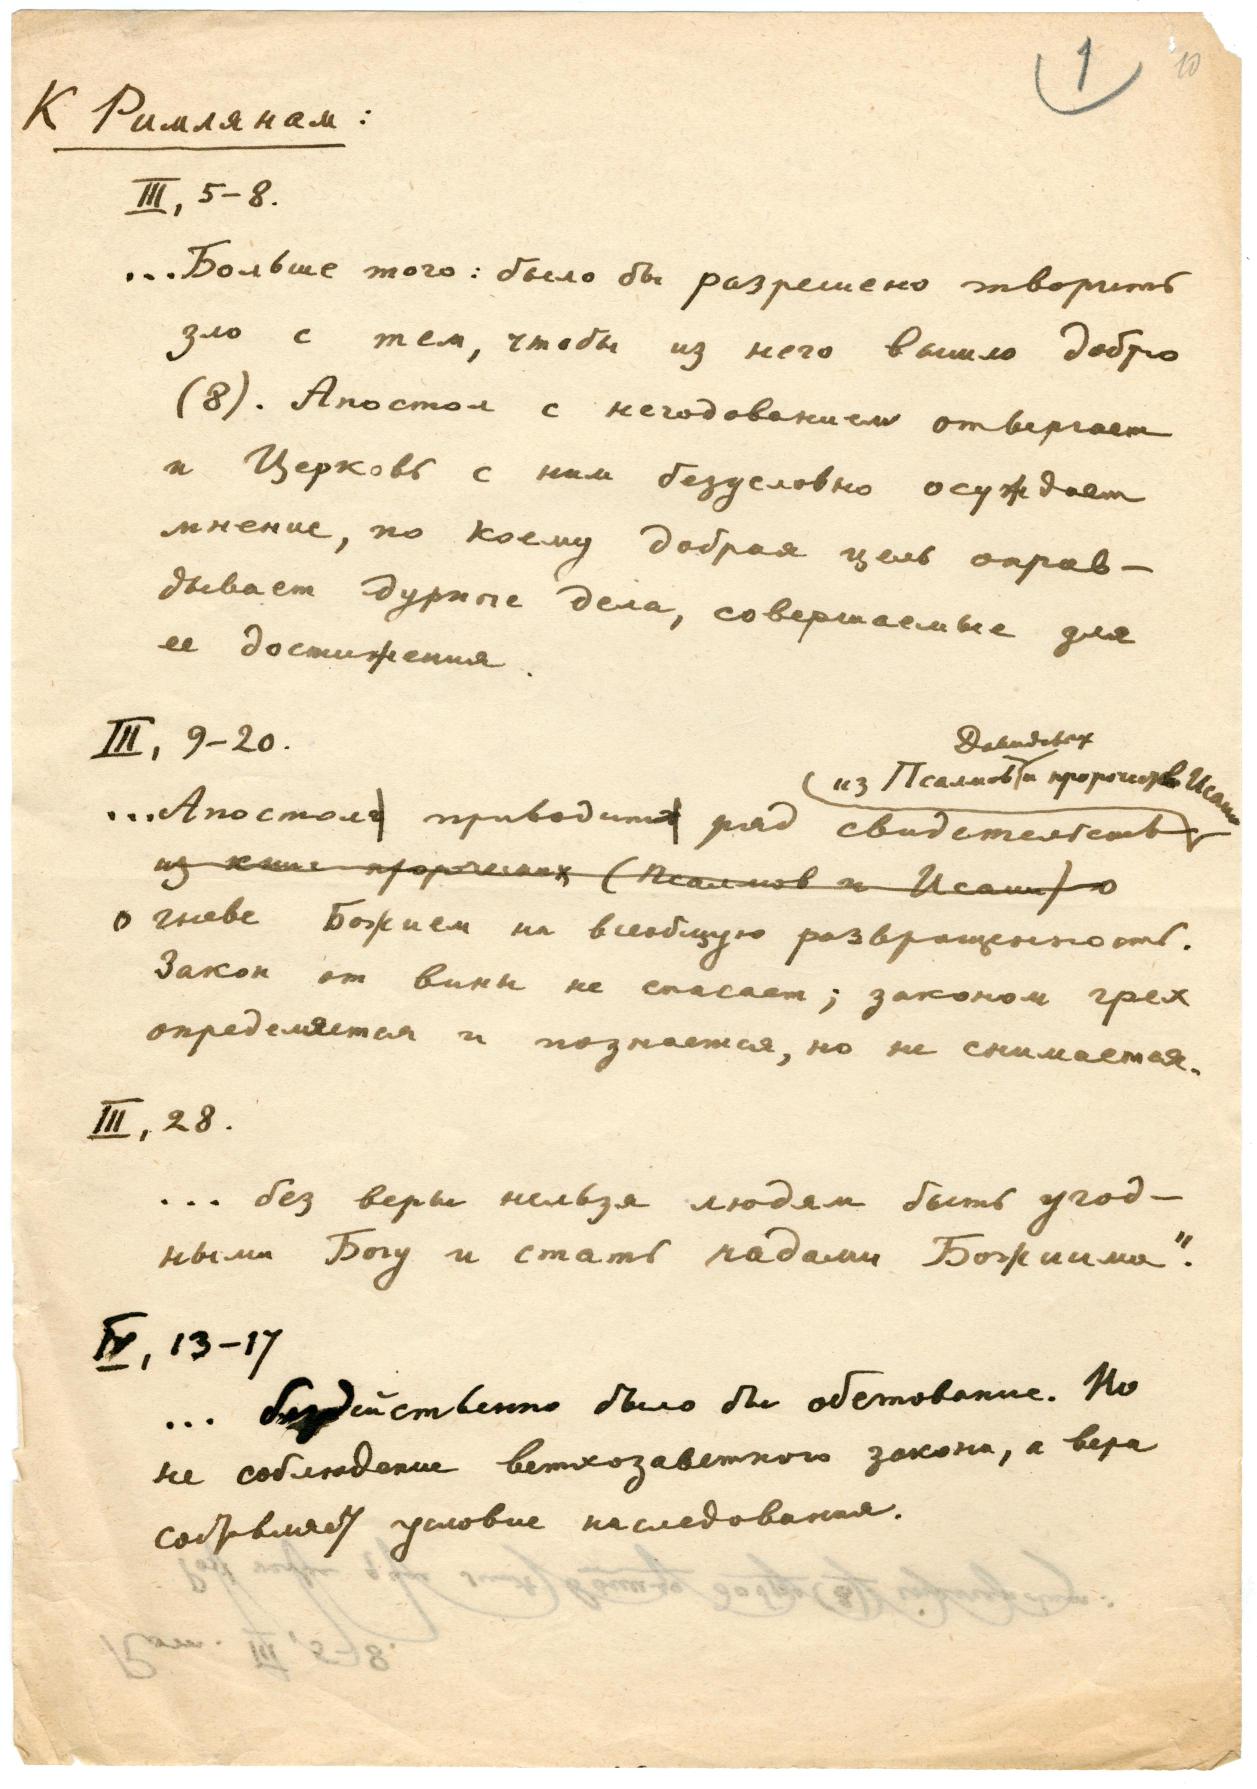 1
10
К Римлянам:
III, 5–8.
...Больше того: было бы разрешено творить
зло с тем, чтобы из него вышло добро
(8). Апостол с негодованием отвергает
и Церковь с ним безусловно осуждает
мнение, по коему добрая цель оправ–
дывает дурные дела, совершаемые для
ее достижения.
III, 9–20.
Давидовых
из Псалмов и пророчеств Исаии
...Апостол приводит ряд свидетельств
из книг пророческих (Псалмов и Исаии) о
о гневе Божием на всеобщую развращенность.
Закон от вины не спасает; законом грех
определяется и познается, но не снимается.
III, 28.
... без веры нельзя людям быть угод–
ными Богу и стать чадами Божиими".
IV, 13–17
... бездейственно было бы обетование. Но
не соблюдение ветхозаветного закона, а вера
условие наследования.
Rom. III, 5–8.